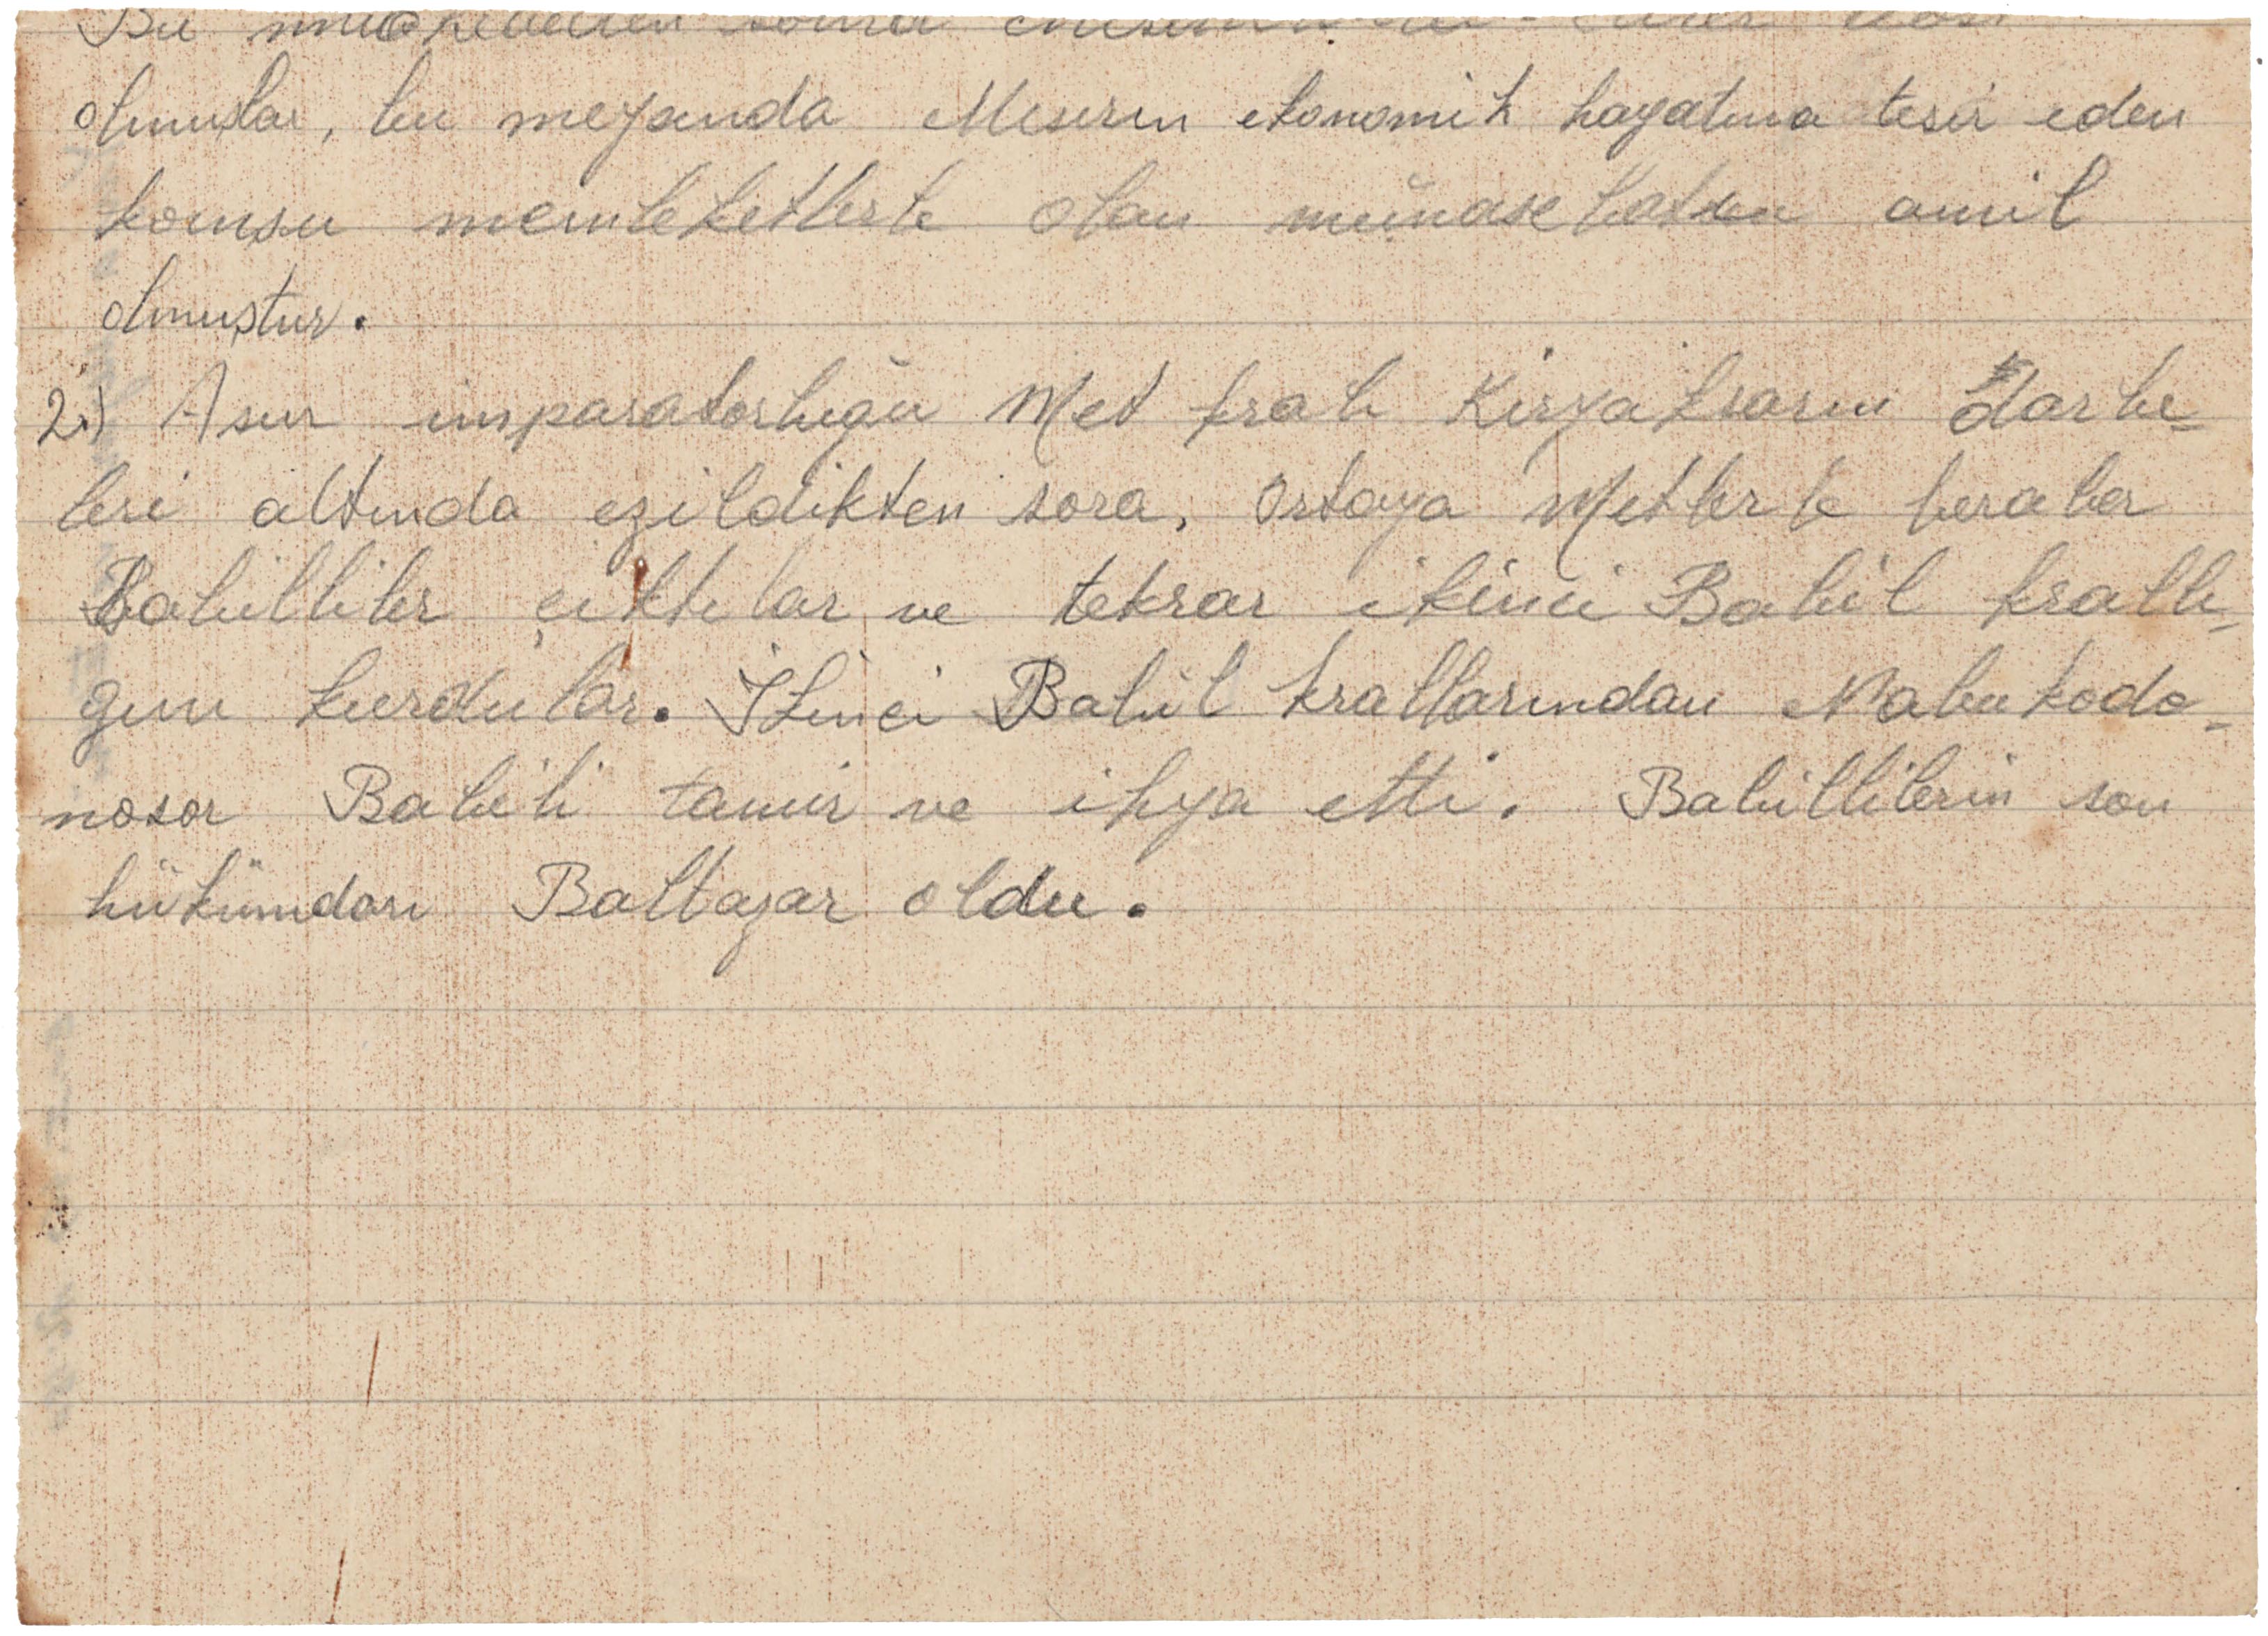 Bu sonra
olmuşlar, bu meyanda Mısırın ekonomik hayatına tesir eden
komşu memleketlerle olan münasebatın amil
olmuştur.
2.) Asur imparatorluğu Met kralı Kiryaksarın darbe-
leri altında ezildikten sora, ortaya Metlerle beraber
Babilliler çıktılar ve tekrar ikinci Babil krallı-
gını kurdular. İkinci Babil krallarından Nabukodo-
nosor Babili tamir ve ihya etti. Babillilerin son
hükümdarı Baltazar oldu.